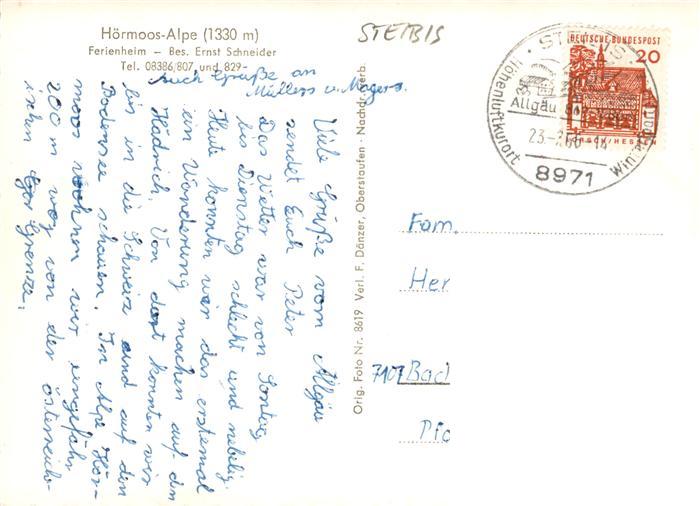 Hörmoos-Alpe (1330 m)
Ferienheim – Bes. Ernst Schneider
Tel. 08386/807 und 829
STEIBIS
Auch Grüße an
Müllers u. Mayers.
Viele Grüße vom Allgäu
sendet Euch Peter
Das Wetter war von Sonntag
bis Dienstag schlecht und nebelig.
Heute konnten wir das erstemal
ein Wanderung machen auf den
Hädrich. Von dort konnten wir
bis in die Schweiz und auf den
Bodensee schauen. In Alpe Hör-
moos wohnen wir ungefähr
200 m weg von der österreichi-
ischen Grenze.
Orig. Foto Nr. 8619 Verl. F. Dänzer, Oberstaufen · Nachdr. verb.
DEUTSCHE BUNDESPOST
20
LORSCH/HESSEN
Allgäu
Höhenluftkurort
8971
Fam.
Her
7107 Bad